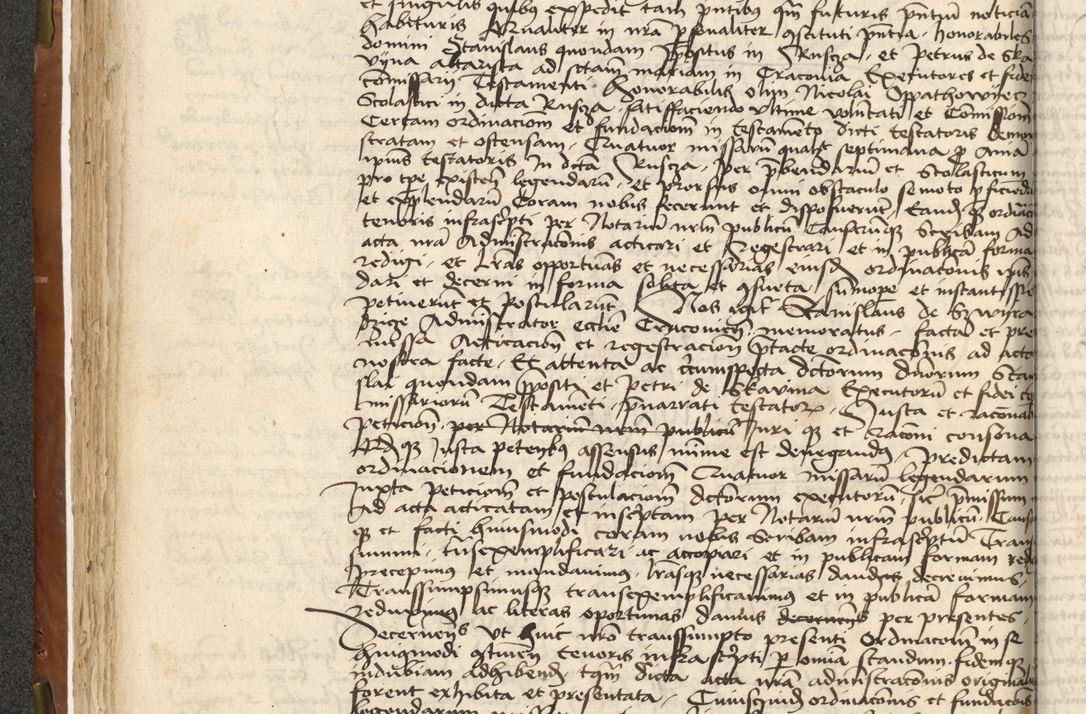 et singulis quibus expedit tam pntibus qm futuris pntium noticia
habituris Qualiter in nra psonaliter qstituti pntia honorabiles
domini Stanislaus quondam ppositus in Ruscza, et Petrus de Ska
vyna altarista ad sctam mariam in Cracovia Executores et fidei
Comissarii Testamenti honorabilis olim Nicolai Oppathowijecz
Scolastici in dicta Rusza, satisfaciendo ultime voluntati et Comissioni
Certam ordinacionem et fundacionem in testamento dicti testatoris demon
stratam et ostensam, Quatuor missarum qualibet septimana p Anima
ipius testatoris In dcta Rusza, per pbendarium et Scholasticum
pro tpe existen legendarum, et prorsus omni obstaculo semoto pficiendarum
et explendarum Coram nobis fecerunt et disposuerunt, Eandem q ordinacio
tenoris infrascripti per Notarium nrum publicum Causarumque Scribam Ad
acta nra Administracionis acticari et Regestrari et in publicam forma
redigi, et lras opportunas et necessarias eiusdem ordinationis ipis
dari et decerni in forma solita et consueta summope et instantissime
petiverunt et postularunt Nos igitur Stanislaus de
Administrator ecclie Cracoviensis memoratus, facta et pre
missa Acticacione et regestracione ptacte ordinacionis ad acta
nostra facte, Et attenta ac circumspecta dictorum dnorum Stanis
slai quondam ppositi et Petri de Skavina Executorum et fidei co
missariorum Testamenti, pnarrati testatoris, Justa et racionabili
peticione, per Notarium nrum publicum Juri q et Racioni consona
q Justa petentibus assensus minime est denegandus, Predictam
ordinacionem et fundacionem Quatuor missarum legendarum
Juxta peticionem et postulacionem dictorum executorum, sic pmissum
Ad acta acticatam et inscriptam per Notarium nrum publicum Causa
q et facti huiusmodi coram nobis Scribam infrascriptum Tran
summi, transexemplificari ac accopiari et in publicam formam redigi
precepimus et mandavimus, lrasque necessarias dandas decrevimus,
Transsumpsimusque transexemplificavimus et in publicam formam
redigimus ac literas oportunas damus decernimus per presentes,
Decernentes Ut huic nro transsumpto presenti Ordinacionem in se
huiusmodi continen tenoris infrascripti p omnia standum, fidemque
indubiam adhibendam tqm dicta acta nra administracionis originalia
forent exhibita et presentata, Cuiusquidem ordinacionis et fundacionis
legendarum